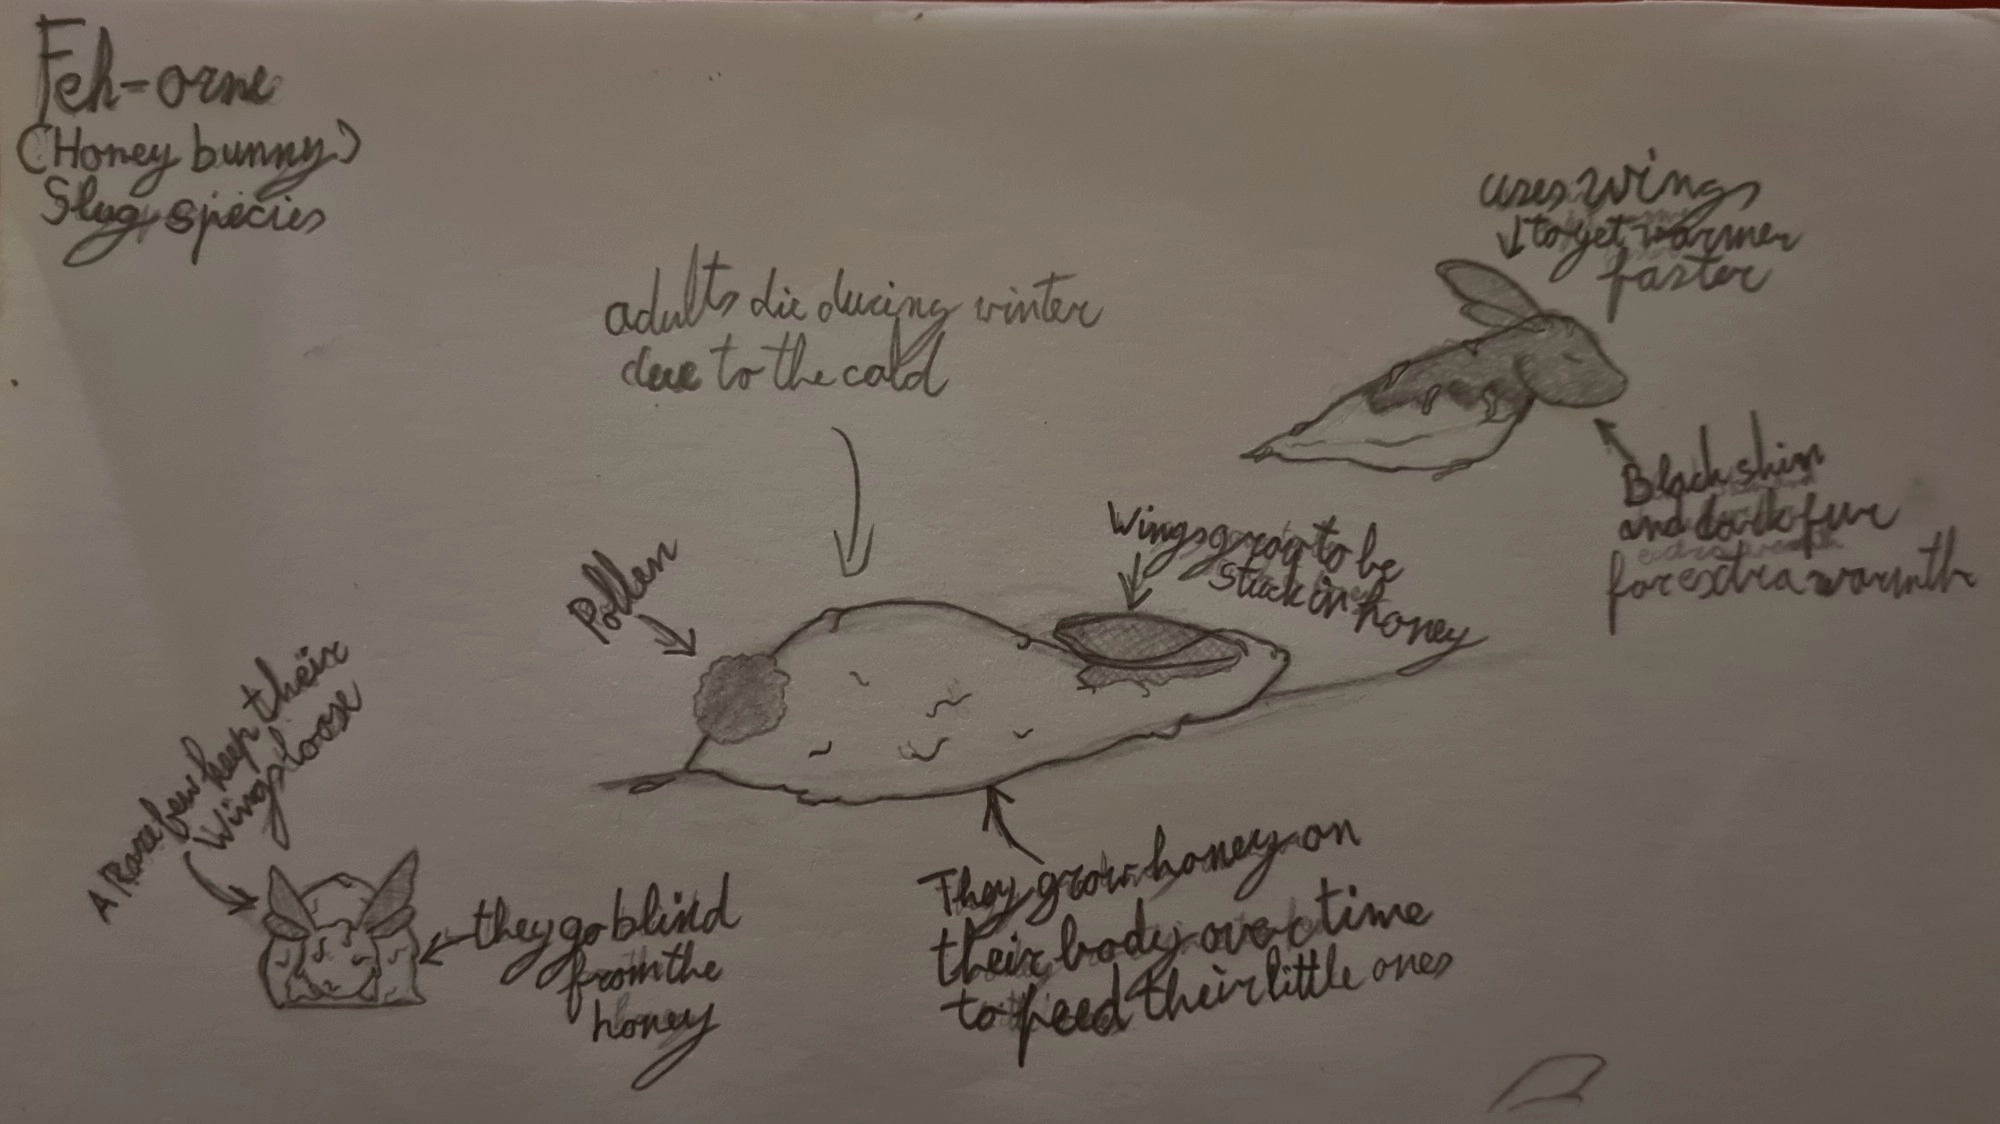 Feh-orne
(Honey bunny)
Slug species
uses wings
to get warmer
faster
adults die during winter
due to the cold
Black skin
and dark fur
for extra warmth
Wings grow to be
stuck in honey
Pollen
A Rare few keep their
Wings loose
they go blind
from the
honey
They grow honey on
their body over time
to feed their little ones